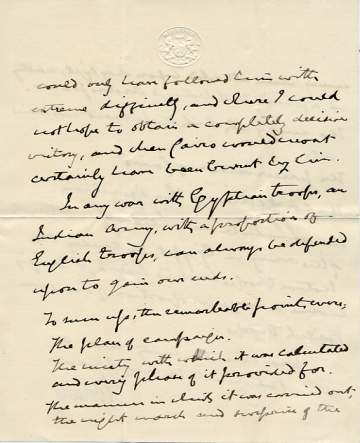 could only have followed him with
extreme difficulty, and where I could
not hope to obtain a completely decisive
victory, and then Cairo would most
certainly have been burnt by him.
In any war with Egyptian troops, an
Indian Army, with a proportion of
English troops, can always be depended
upon to gain our ends.
To sum up, the remarkable points were,
The plan of campaign.
The nicety with which it was calculated
and every phase of it provided for.
The manner in which it was carried out;
the night march and surprise of the